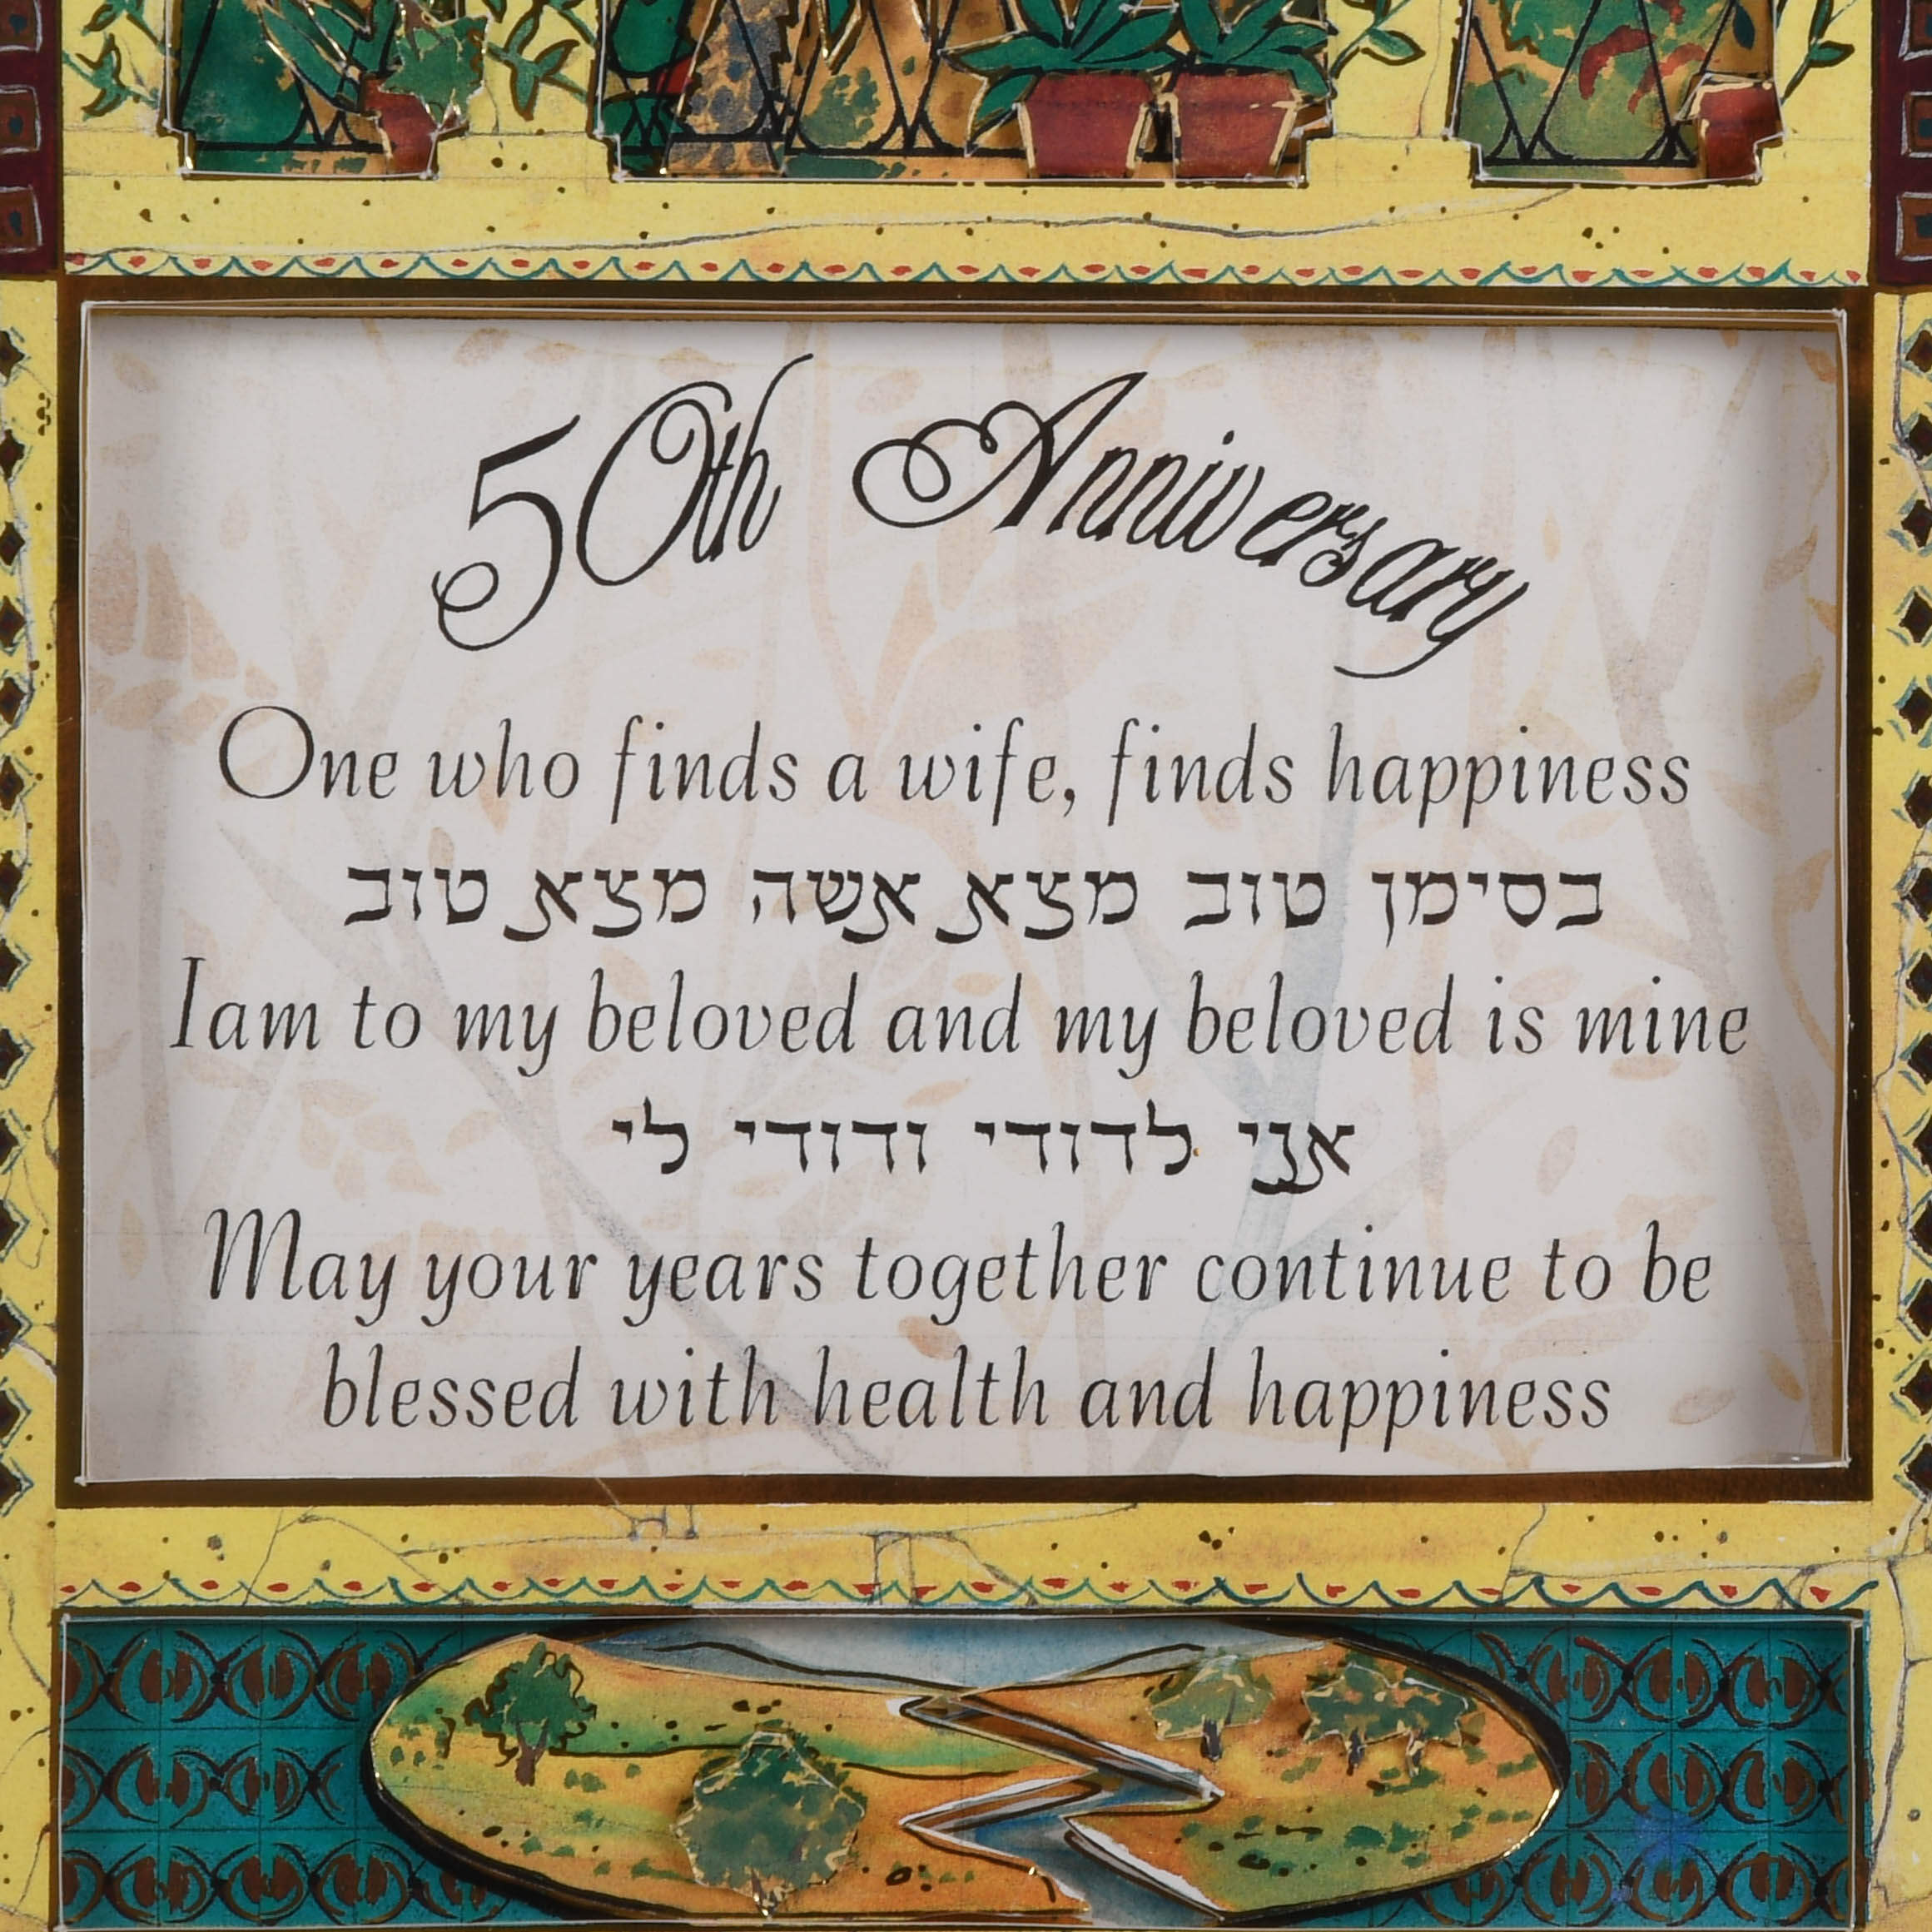 50th Anniversary
One who finds a wife, finds happiness
בסימן טוב מצא אשה מצא טוב
I am to my beloved and my beloved is mine
אני לדודי ודודי לי
May your years together continue to be
blessed with health and happiness